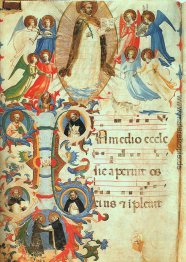 n medio eccle
sie aperuit os
eius et ipleuit